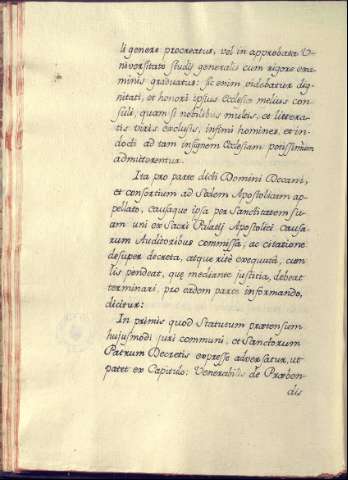 li genere procreatus, vel in approbata U-
niversitate studij generalis cum rigore exa-
minis graduatus: sic enim videbatur dig-
nitati, et honori ipsius Ecclesiæ melius con-
suli, quam si nobilibus multis, et littera-
tis viris exclusis, infimi homines, et in-
docti ad tam insignem Ecclesiam potissimum
admitterentur.
Ita pro parte dicti Domini Decani,
et consortium ad Sedem Apostolicam ap-
pellato, causaque ipsa per Sanctitatem su-
am uni ex Sacri Palatij Apostolici causa-
rum Auditoribus commissa, ac citatione
desuper decreta, atque ritè exequuta, cum
lis pendeat, quæ mediante justitia, debeat
terminari, pro eadem parte informando,
dicitur:
In primis quod Statutum prætensum
hujusmodi juri communi, et Sanctorum
Patrum Decretis expresse adversatur, ut
patet ex Capitulo: Venerabilis de Præben-
dis